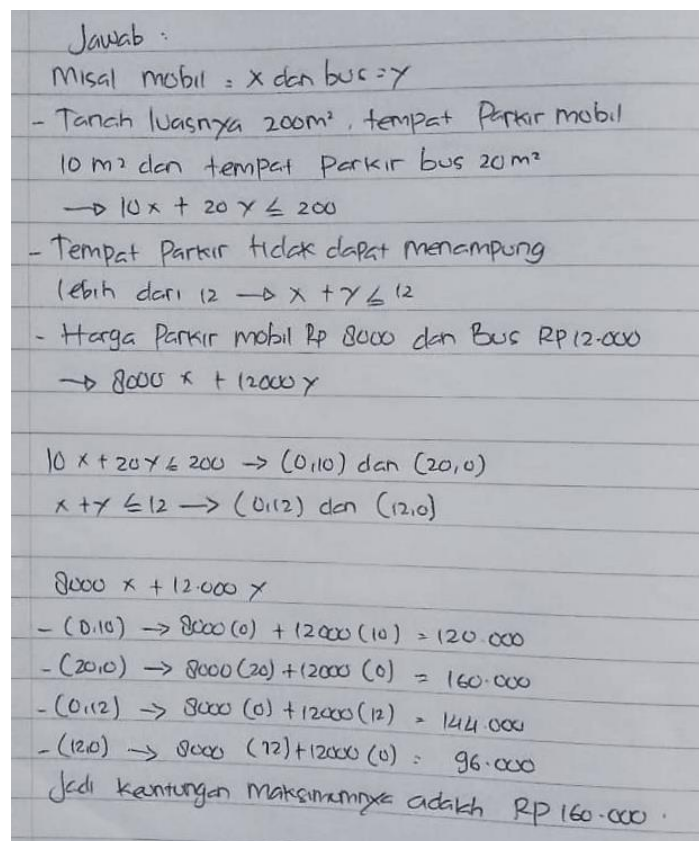 Jawab :
Misal mobil = x dan bus = y
- Tanah luasnya 200m², tempat Parkir mobil
10 m² dan tempat parkir bus 20 m²
→ 10x + 20 y ≤ 200
- Tempat Parkir tidak dapat menampung
lebih dari 12 → x + y ≤ 12
- Harga Parkir mobil Rp 8000 dan Bus RP 12.000
→ 8000 x + 12000 y
10 x + 20 y ≤ 200 → (0,10) dan (20,0)
x + y ≤ 12 → (0,12) dan (12,0)
8000 x + 12.000 y
- (0,10) → 8000 (0) + 12000 (10) = 120.000
- (20,0) → 8000 (20) + 12000 (0) = 160.000
- (0,12) → 8000 (0) + 12000 (12) = 144.000
- (12,0) → 8000 (12) + 12000 (0) = 96.000
Jadi keuntungan maksimumnya adalah RP 160.000.